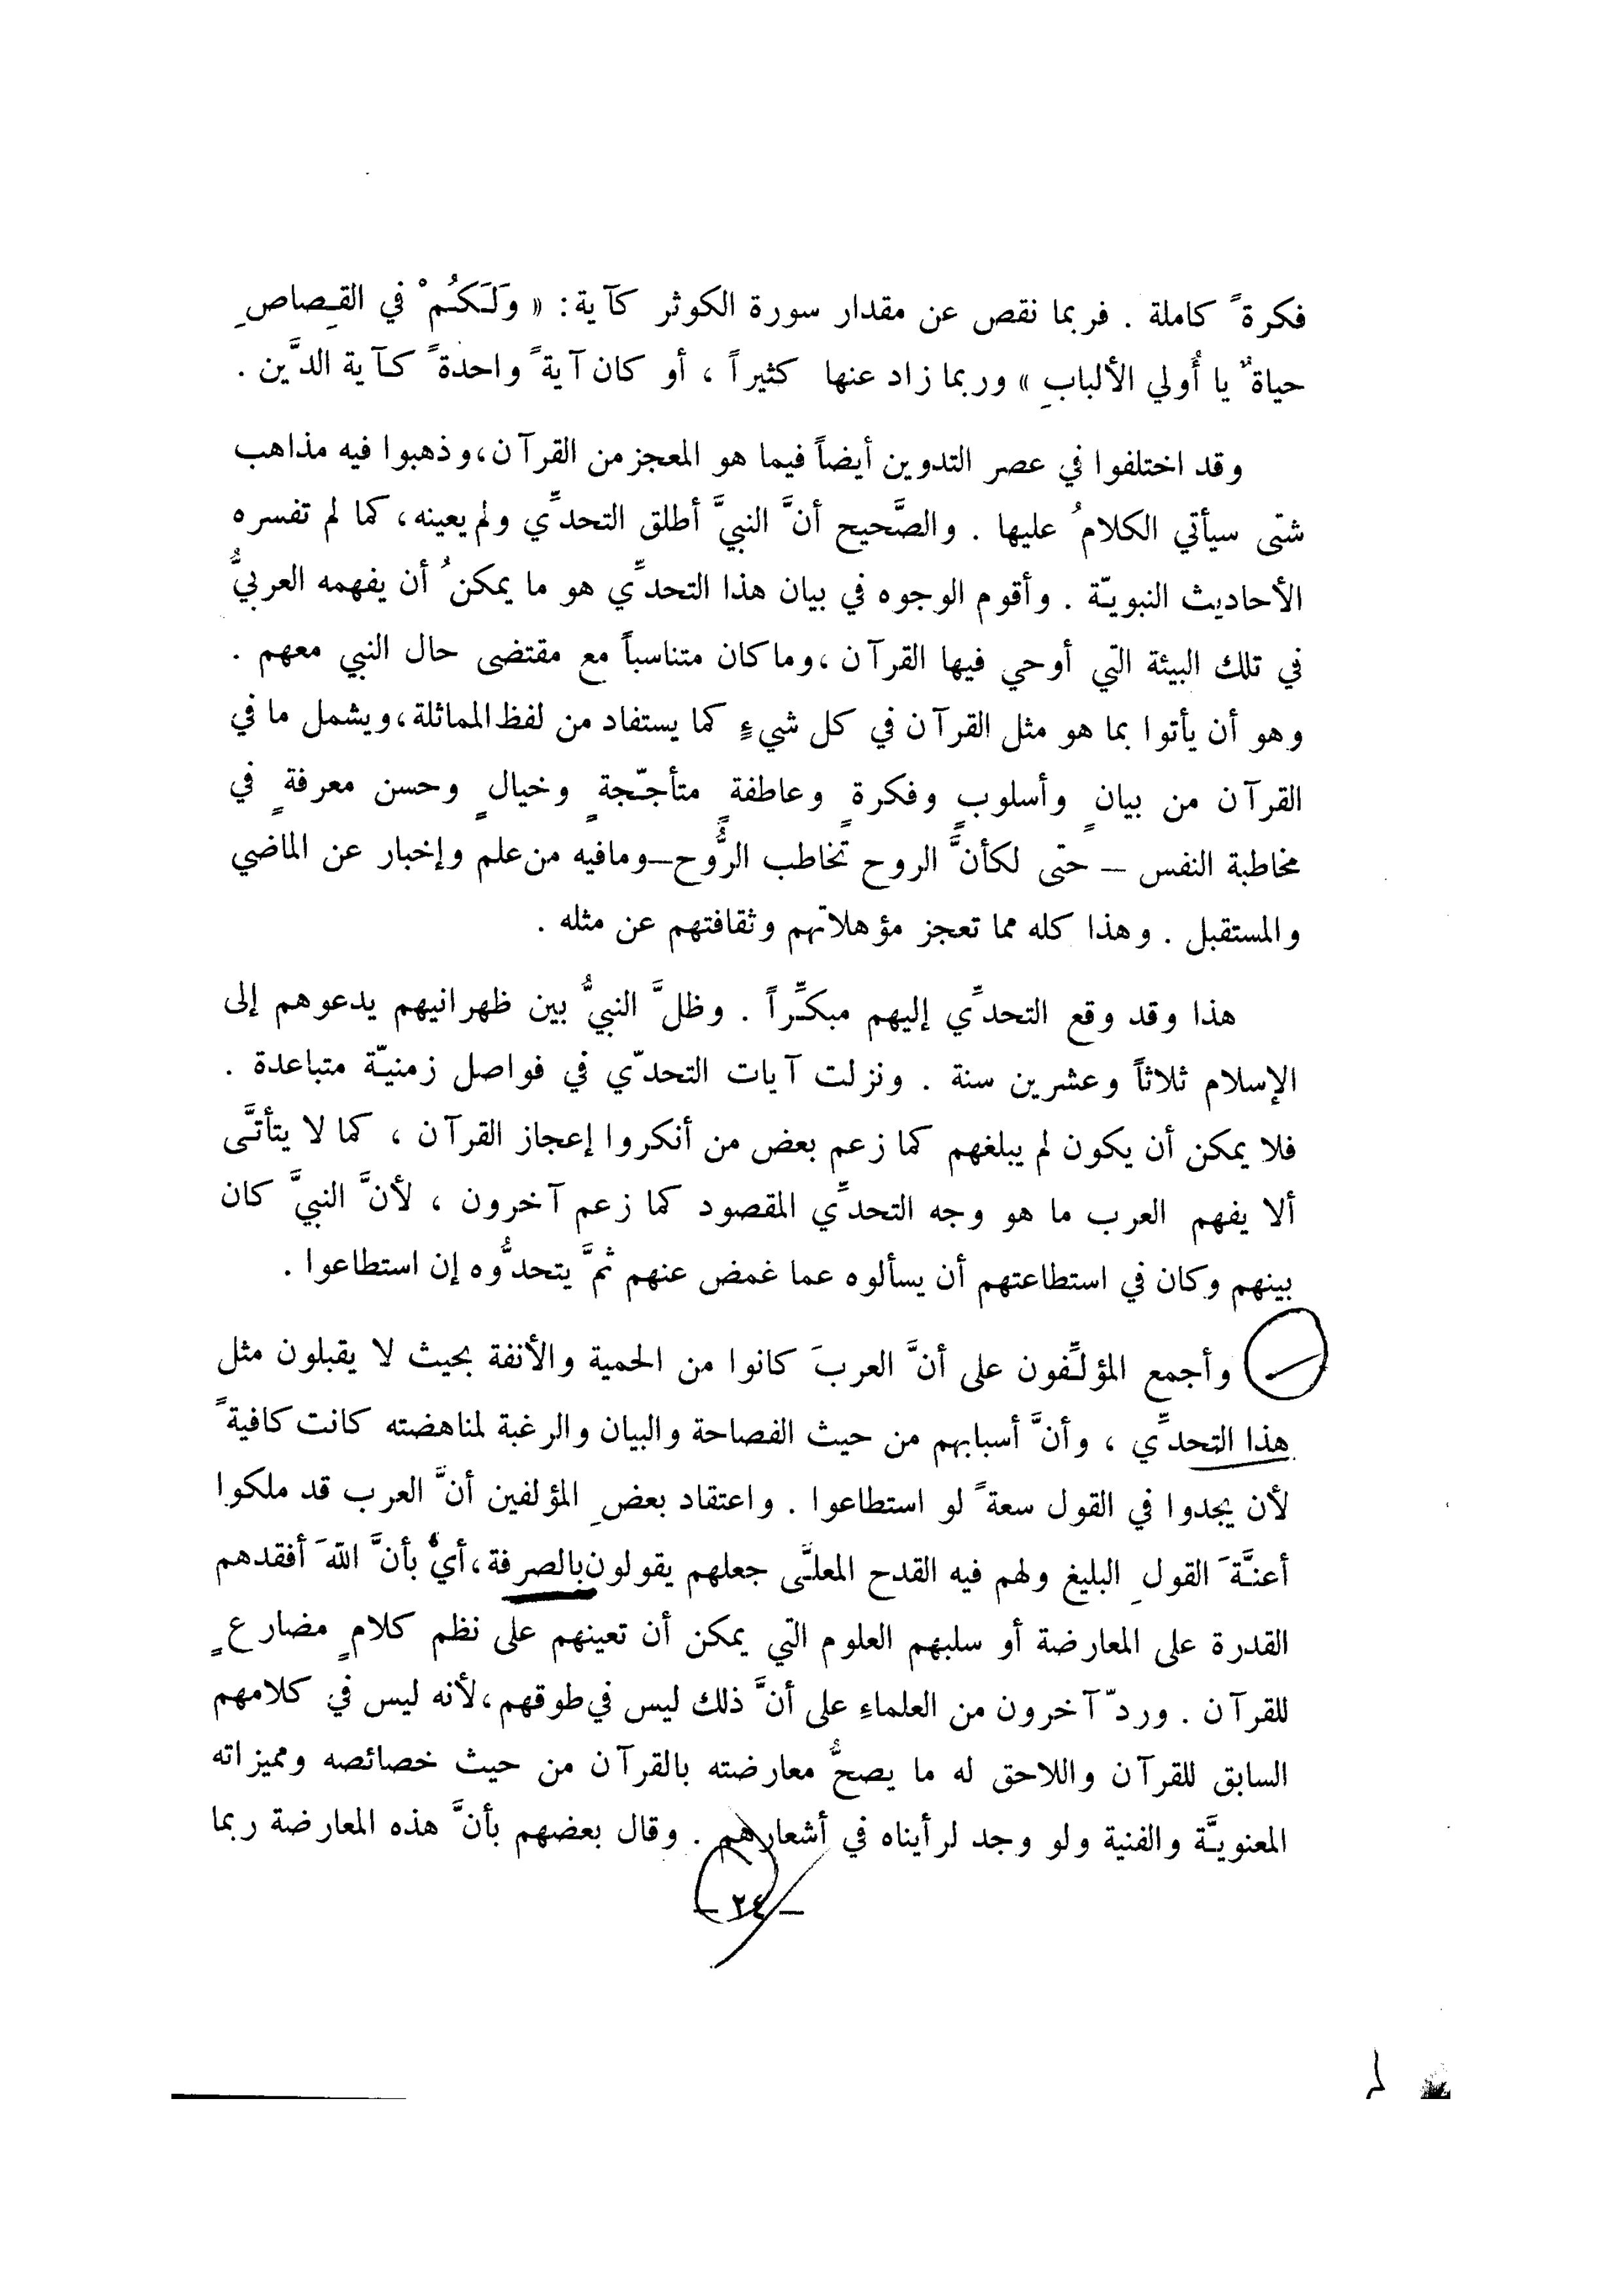 فكرةً كاملة . فربما نقص عن مقدار سورة الكوثر كآية: « وَلَكُمْ في القِصاصِ
حياةٌ يا أُولي الألبابِ » وربما زاد عنها كثيراً ، أو كان آيةً واحدةً كآية الدَّين .
وقد اختلفوا في عصر التدوين أيضاً فيما هو المعجز من القرآن،وذهبوا فيه مذاهب
شتى سيأتي الكلامُ عليها . والصَّحيح أنَّ النبيَّ أطلق التحدِّي ولم يعينه، كما لم تفسره
الأحاديث النبويّة . وأقوم الوجوه في بيان هذا التحدِّي هو ما يمكنُ أن يفهمه العربيُّ
في تلك البيئة التي أوحي فيها القرآن ،وما كان متناسباً مع مقتضى حال النبي معهم .
وهو أن يأتوا بما هو مثل القرآن في كل شيءٍ كما يستفاد من لفظ المماثلة،ويشمل ما في
القرآن من بيانٍ وأسلوبٍ وفكرةٍ وعاطفةٍ متأجّجةٍ وخيالٍ وحسن معرفةٍ في
مخاطبة النفس – حتى لكأنَّ الروح تخاطب الرُّوح–ومافيه من علم وإخبار عن الماضي
والمستقبل . وهذا كله مما تعجز مؤهلاتهم وثقافتهم عن مثله .
هذا وقد وقع التحدِّي إليهم مبكِّراً . وظلَّ النبيُّ بين ظهرانيهم يدعوهم إلى
الإسلام ثلاثاً وعشرين سنة . ونزلت آيات التحدّي في فواصل زمنيّة متباعدة .
فلا يمكن أن يكون لم يبلغهم كما زعم بعض من أنكروا إعجاز القرآن ، كما لا يتأتَّى
ألا يفهم العرب ما هو وجه التحدِّي المقصود كما زعم آخرون ، لأنَّ النبيَّ كان
بينهم وكان في استطاعتهم أن يسألوه عما غمض عنهم ثمَّ يتحدُّوه إن استطاعوا .
وأجمع المؤلِّفون على أنَّ العربَ كانوا من الحمية والأنفة بحيث لا يقبلون مثل
هذا التحدِّي ، وأنَّ أسبابهم من حيث الفصاحة والبيان والرغبة لمناهضته كانت كافيةً
لأن يجدوا في القول سعةً لو استطاعوا . واعتقاد بعضِ المؤلفين أنَّ العرب قد ملكوا
أعنَّةَ القولِ البليغ ولهم فيه القدح المعلَّى جعلهم يقولون بالصرفة،أيْ بأنَّ اللهَ أفقدهم
القدرة على المعارضة أو سلبهم العلوم التي يمكن أن تعينهم على نظم كلامٍ مضارعٍ
للقرآن . وردّ آخرون من العلماءِ على أنَّ ذلك ليس في طوقهم،لأنه ليس في كلامهم
السابق للقرآن واللاحق له ما يصحُّ معارضته بالقرآن من حيث خصائصه ومميزاته
المعنويَّة والفنية ولو وجد لرأيناه في أشعارهم . وقال بعضهم بأنَّ هذه المعارضة ربما
– ٢٤ –